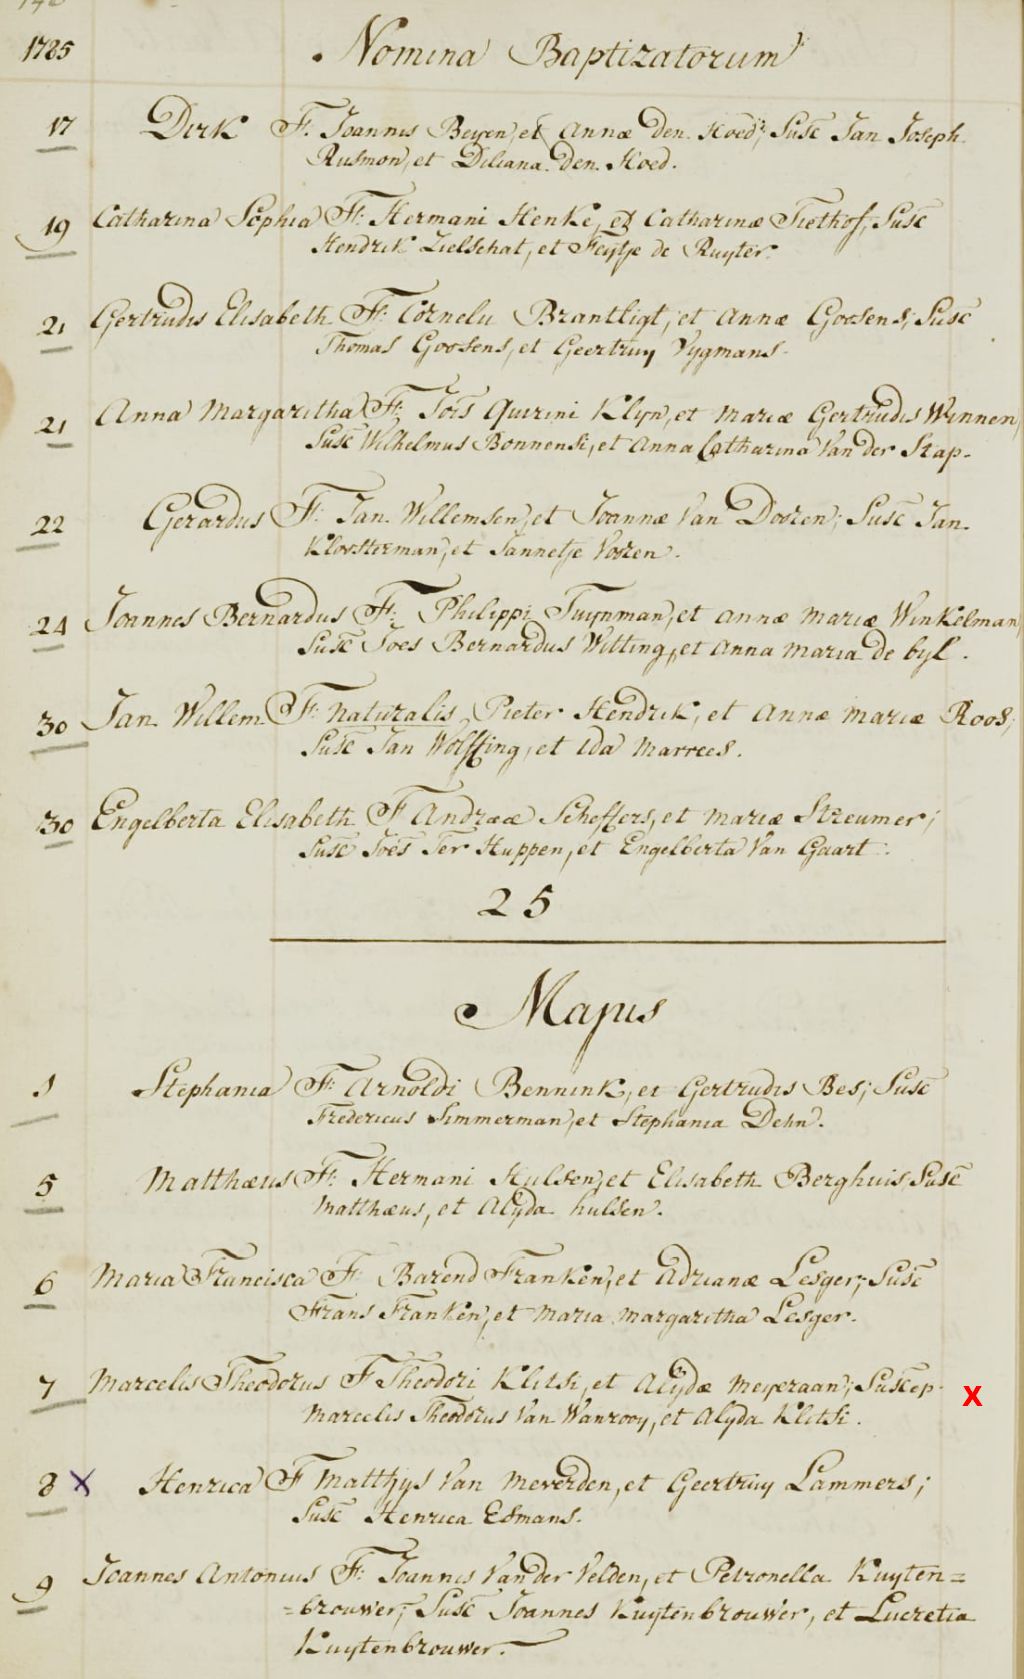 1785 Nomina Baptizatorum
17 Dirk F: Joannis Beyen, et Annæ Den Hoed; Susc Jan Joseph
Rusmon, et Diliana Den Hoed.
19 Catharina Sophia F: Hermani Henke, et Catharinæ Tiethof, Susc
Hendrik Zielschat, et Feytje de Ruyter.
21 Gertrudis Elisabeth F: Cornelii Brantligt, et Annæ Goosens; Susc
Thomas Goosens, et Geertruy Vygmans.
21 Anna Margaritha F: Jois Quirini Klyn, et Mariæ Gertrudis Wennen,
Susc Wilhelmus Bonnensi, et Anna Catharina Van der Stap.
22 Gerardus F: Jan Willemsen, et Joannæ Van Dosten; Susc Jan
Kloosterman, et Jannetje Vosten.
24 Joannes Bernardus F: Philippi Tuynman, et Annæ Mariæ Winkelman,
Susc Joes Bernardus Witting, et Anna Maria de byl.
30 Jan Willem F: naturalis Pieter Hendrik, et Annæ Mariæ Roos;
Susc Jan Wolffing, et Ida Marrees.
30 Engelberta Elisabeth F Andreæ Scheffers, et Mariæ Streumer;
Susc Joes Ter Huppen, et Engelberta Van Gaart.
25
Majus
1 Stephania F: Arnoldi Bennink, et Gertrudis Bes; Susc
Fredericus Simmerman, et Stephania Dehn.
5 Matthæus F: Hermani Hulsen, et Elisabeth Berghuis, Susc
Matthæus, et Alyda hulsen.
6 Maria Francisca F: Barend Franken, et Adrianæ Lesger; Susc
Frans Franken, et Maria Margaritha Lesger.
7 Marcelis Theodorus F Theodori Klitsi, et Alydæ Meyeraan; Suscep. X
Marcelis Theodorus Van Wanrooy, et Alyda Klitsi.
8 x Henrica F Matthys Van Meverden, et Geertruy Lammers;
Susc Henrica Esmans.
9 Joannes Antonius F: Joannis Van der Velden, et Petronella Kuyten=
=brouwer; Susc Joannes Kuytenbrouwer, et Lucretia
Kuytenbrouwer.